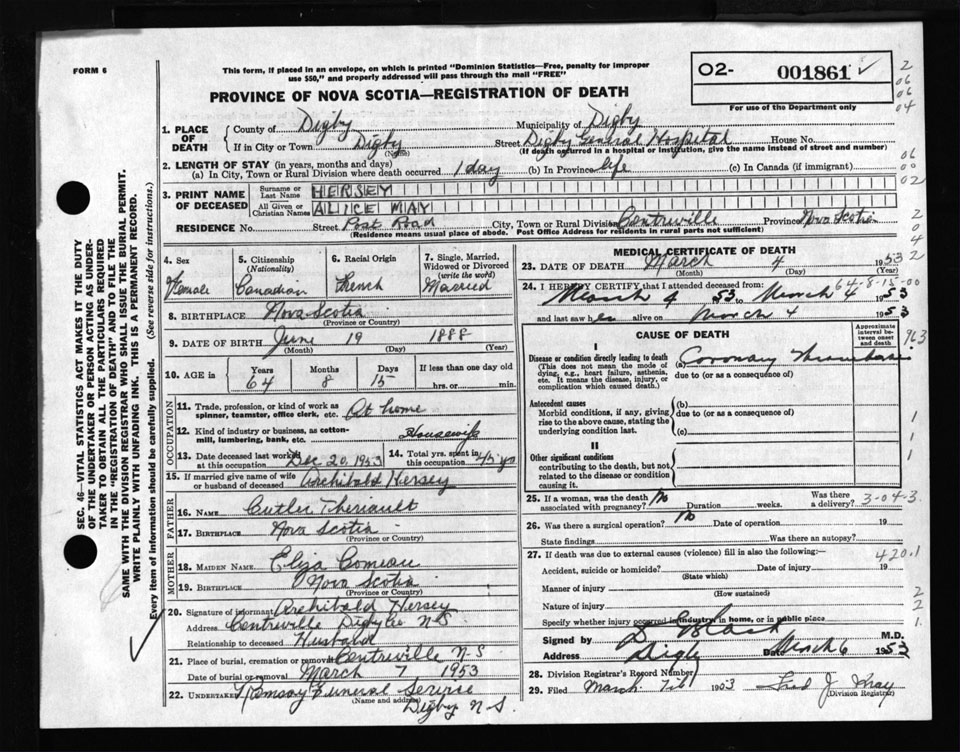 FORM 6
This form, if placed in an envelope, on which is printed "Dominion Statistics—Free, penalty for improper
use $50," and properly addressed will pass through the mail "FREE"
PROVINCE OF NOVA SCOTIA—REGISTRATION OF DEATH
02- 001861 ✓
For use of the Department only
2
06
06
04
06
00
02
2
0
4
2
SEC. 46—VITAL STATISTICS ACT MAKES IT THE DUTY
OF THE UNDERTAKER OR PERSON ACTING AS UNDER-
TAKER TO OBTAIN ALL THE PARTICULARS REQUIRED
IN THE "REGISTRATION OF DEATH" AND TO FILE THE
SAME WITH THE DIVISION REGISTRAR WHO SHALL ISSUE THE BURIAL PERMIT.
WRITE PLAINLY WITH UNFADING INK. THIS IS A PERMANENT RECORD.
Every item of information should be carefully supplied. (See reverse side for instructions.)
1. PLACE OF DEATH
County of Digby Municipality of Digby
If in City or Town Digby (Name) Street Digby General Hospital House No.
(If death occurred in a hospital or institution, give the name instead of street and number)
2. LENGTH OF STAY (in years, months and days)
(a) In City, Town or Rural Division where death occurred 1 day (b) In Province life (c) In Canada (if immigrant)
3. PRINT NAME OF DECEASED
Surname or Last Name HERSEY
All Given or Christian Names ALICE MAY
RESIDENCE No. Street Post Road City, Town or Rural Division Centreville Province Nova Scotia
(Residence means usual place of abode. Post Office Address for residents in rural parts not sufficient)
4. Sex Female
5. Citizenship (Nationality) Canadian
6. Racial Origin French
7. Single, Married, Widowed or Divorced (write the word) Married
8. BIRTHPLACE Nova Scotia
(Province or Country)
9. DATE OF BIRTH June 19 1888
(Month) (Day) (Year)
10. AGE in Years 64 Months 8 Days 15 If less than one day old
hrs. or min.
OCCUPATION
11. Trade, profession, or kind of work as spinner, teamster, office clerk, etc. At home
12. Kind of industry or business, as cotton-mill, lumbering, bank, etc. Housewife
13. Date deceased last worked at this occupation Dec 20, 1953
14. Total yrs. spent in this occupation 45 yrs
15. If married give name of wife or husband of deceased Archibald Hersey
FATHER
16. NAME Cutler Theriault
17. BIRTHPLACE Nova Scotia
(Province or Country)
MOTHER
18. MAIDEN NAME Eliza Comeau
19. BIRTHPLACE Nova Scotia
(Province or Country)
20. Signature of informant Archibald Hersey
Address Centreville Digby Co N.S
Relationship to deceased Husband
21. Place of burial, cremation or removal Centreville N-S
Date of burial or removal March 7 1953
22. UNDERTAKER Ramsay Funeral Service
(Name and address) Digby N.S.
MEDICAL CERTIFICATE OF DEATH
23. DATE OF DEATH March 4 1953
(Month) (Day) (Year)
64-8-15-00
24. I HEREBY CERTIFY, that I attended deceased from:
March 4 1953 to March 4 1953
and last saw her alive on March 4 1953
CAUSE OF DEATH
Approximate interval between onset and death
963
I
Disease or condition directly leading to death
(This does not mean the mode of dying, e.g., heart failure, asthenia, etc. It means the disease, injury, or complication which caused death.)
(a) Coronary Thrombosis
due to (or as a consequence of)
Antecedent causes
Morbid conditions, if any, giving rise to the above cause, stating the underlying condition last.
(b)
due to (or as a consequence of)
(c)
1
1
1
II
Other significant conditions
contributing to the death, but not related to the disease or condition causing it.
25. If a woman, was the death associated with pregnancy? No Duration weeks. Was there a delivery?
3-04-3.
26. Was there a surgical operation? No Date of operation 19
State findings Was there an autopsy?
27. If death was due to external causes (violence) fill in also the following:—
420.1
Accident, suicide or homicide? (State which) Date of injury 19
Manner of injury (How sustained)
Nature of injury
Specify whether injury occurred in industry, in home, or in public place
2
2
1.
Signed by D Black M.D.
Address Digby Date March 6 1953
28. Division Registrar's Record Number
29. Filed March 7th 1953 Fred J.
(Division Registrar)